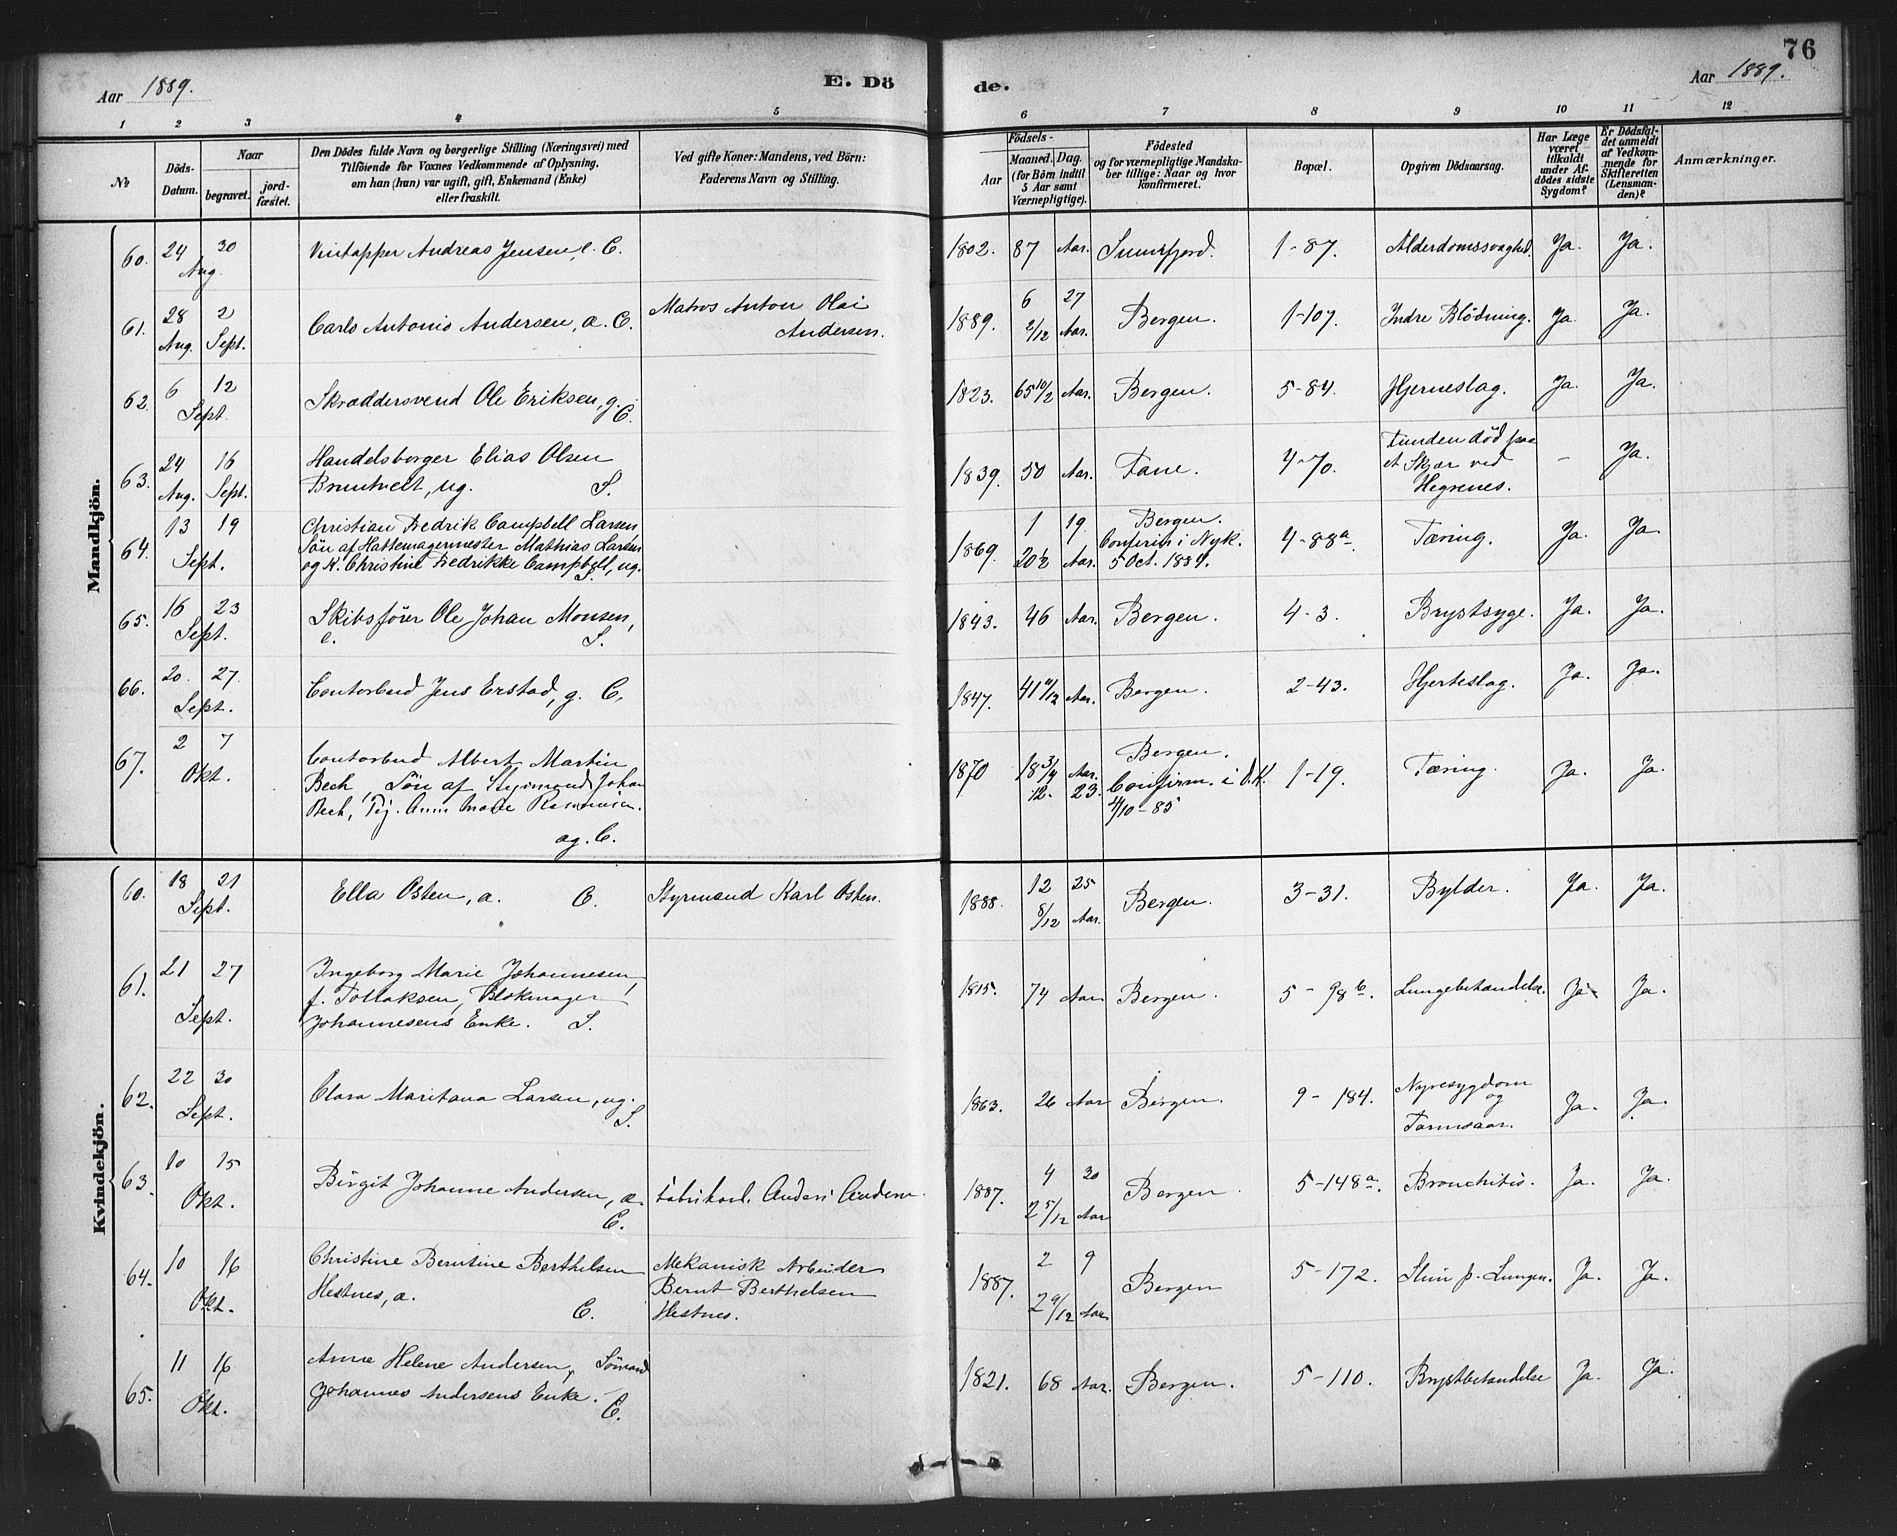 76
Aar 1889. E. Dö de. Aar 1889.
1 2 3 4 5 6 7 8 9 10 11 12
No
Döds-
Datum.
Naar
begravet.
jord-
fæstet.
Den Dödes fulde Navn og borgerlige Stilling (Næringsvei) med
Tilföiende for Voxnes Vedkommende af Oplysning.
om han (hun) var ugift, gift, Enkemand (Enke)
eller fraskilt.
Ved gifte Koner: Mandens, ved Börn:
Faderens Navn og Stilling.
Födsels-
Aar
Maaned. Dag.
(for Börn indtil
5 Aar samt
Værnepligtige).
Födested
og for værnepligtige Mandska-
ber tillige: Naar og hvor
konfirmeret.
Bopæl.
Opgiven Dödsaarsag.
Har Læge
været
tilkaldt
under Af-
dödes sidste
Sygdom?
Er Dödsfal-
det anmeldt
af Vedkom-
mende for
Skifteretten
(Lensman-
den)?
Anmærkninger.
Mandkjön.
60. 24 30 Vintapper Andreas Jensen, e. C. 1802. 87 Aar. Sunnfjord. 1-87. Alderdomssvaghed. Ja. Ja.
Aug.
61. 28 2 Carls Antonio Andersen, a. C. Matros Anton Olai 1889. 6 27 Bergen. 1-107. Indre Blödning. Ja. Ja.
Aug. Sept. Andersen. 2/12 Aar.
62. 6 12 Skræddersvend Ole Eriksen, g. C. 1823. 65 10/12 Aar. Bergen. 5-84. Hjerneslag. Ja. Ja.
Sept.
63. 24 16 Handelsborger Elias Olsen 1839. 50 Aar. Fane. 4-70. Funden död paa - Ja.
Aug. Sept. ug. S. et Skjær ved
Hegrenes.
64. 13 19 Christian Fredrik Campbell Larsen 1869. 1 19 Bergen. 4-88a. Tæring. Ja. Ja.
Sept. Sön af Hattemagermester Mathias Larsen 20 1/2 Aar. Confirm. i Nyk.
og K. Christine Fredrikke Campbell, ug. S. 5 Oct. 1884.
65. 16 23 Skibsförer Ole Johan Monsen, 1843. 46 Aar. Bergen. 4-3. Brystsyge. Ja. Ja.
Sept. e. S.
66. 20. 27. Contorbud Jens Erstad, g. C. 1847. 41 11/12 Aar. Bergen. 2-43. Hjerteslag. Ja. Ja.
Sept.
67. 2 7 Contorbud Albert Martin 1870 18 3/4 Aar. Bergen. 1-19. Tæring. Ja. Ja.
Okt. Bech, Sön af Styrmand Johan 12. 23. Confirm. i D.K.
Bech, Pig. Anne Marie Rasmusen. 4/10-85
ug. C.
Kvindekjön.
60. 18 21 Ella Osten, a. C. Styrmand Karl Osten. 1888. 12 25 Bergen. 3-31. Bylder. Ja. Ja.
Sept. 8/12 Aar.
61. 21 27 Ingeborg Marie Johannesen, 1815. 74 Aar Bergen. 5-98b. Lungebetændelse. Ja. Ja.
Sept. f. Tollaksen, Blokmager
Johannesens Enke. S.
62. 22 30 Clara Maritana Larsen, ug. S. 1863. 26 Aar Bergen. 9-184. Nyresygdom Ja. Ja.
Sept. og
Tarmsaar.
63. 10 15 Birgit Johanne Andersen, a. Fabrikarb. Anders Andersen. 1887. 4 20 Bergen. 5-148a. Bronchitis. Ja. Ja.
Okt. C. 2 5/12 Aar
64. 10 16 Christine Berntine Berthelsen Mekanisk Arbeider 1887. 2 9 Bergen 5-172. Slim p. Lungen. Ja. Ja.
Okt. Hestnes, a. C. Bernt Berthelsen 2 9/12 Aar
Hestnes.
65. 11 16 Anne Helene Andersen, Sömand 1821. 68 Aar. Bergen. 5-110. Brystbetændelse Ja. Ja.
Okt. Johannes Andersens Enke. C.